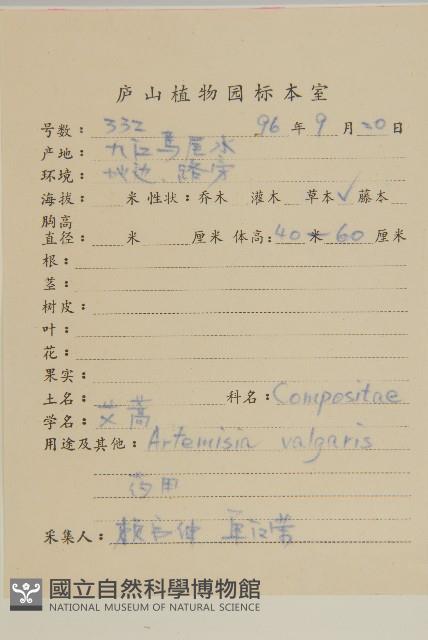 庐山植物园标本室
号数：332 96年9月20日
产地：九江馬尾水
环境：地边、路旁
海拔： 米 性状：乔木 灌木 草本✓ 藤本
胸高
直径： 米 厘米 体高：40 米 60 厘米
根：
茎：
树皮：
叶：
花：
果实：
土名：艾蒿 科名：Compositae
学名：
用途及其他：Artemisia valgaris
药用
采集人：赖
國立自然科學博物館
NATIONAL MUSEUM OF NATURAL SCIENCE